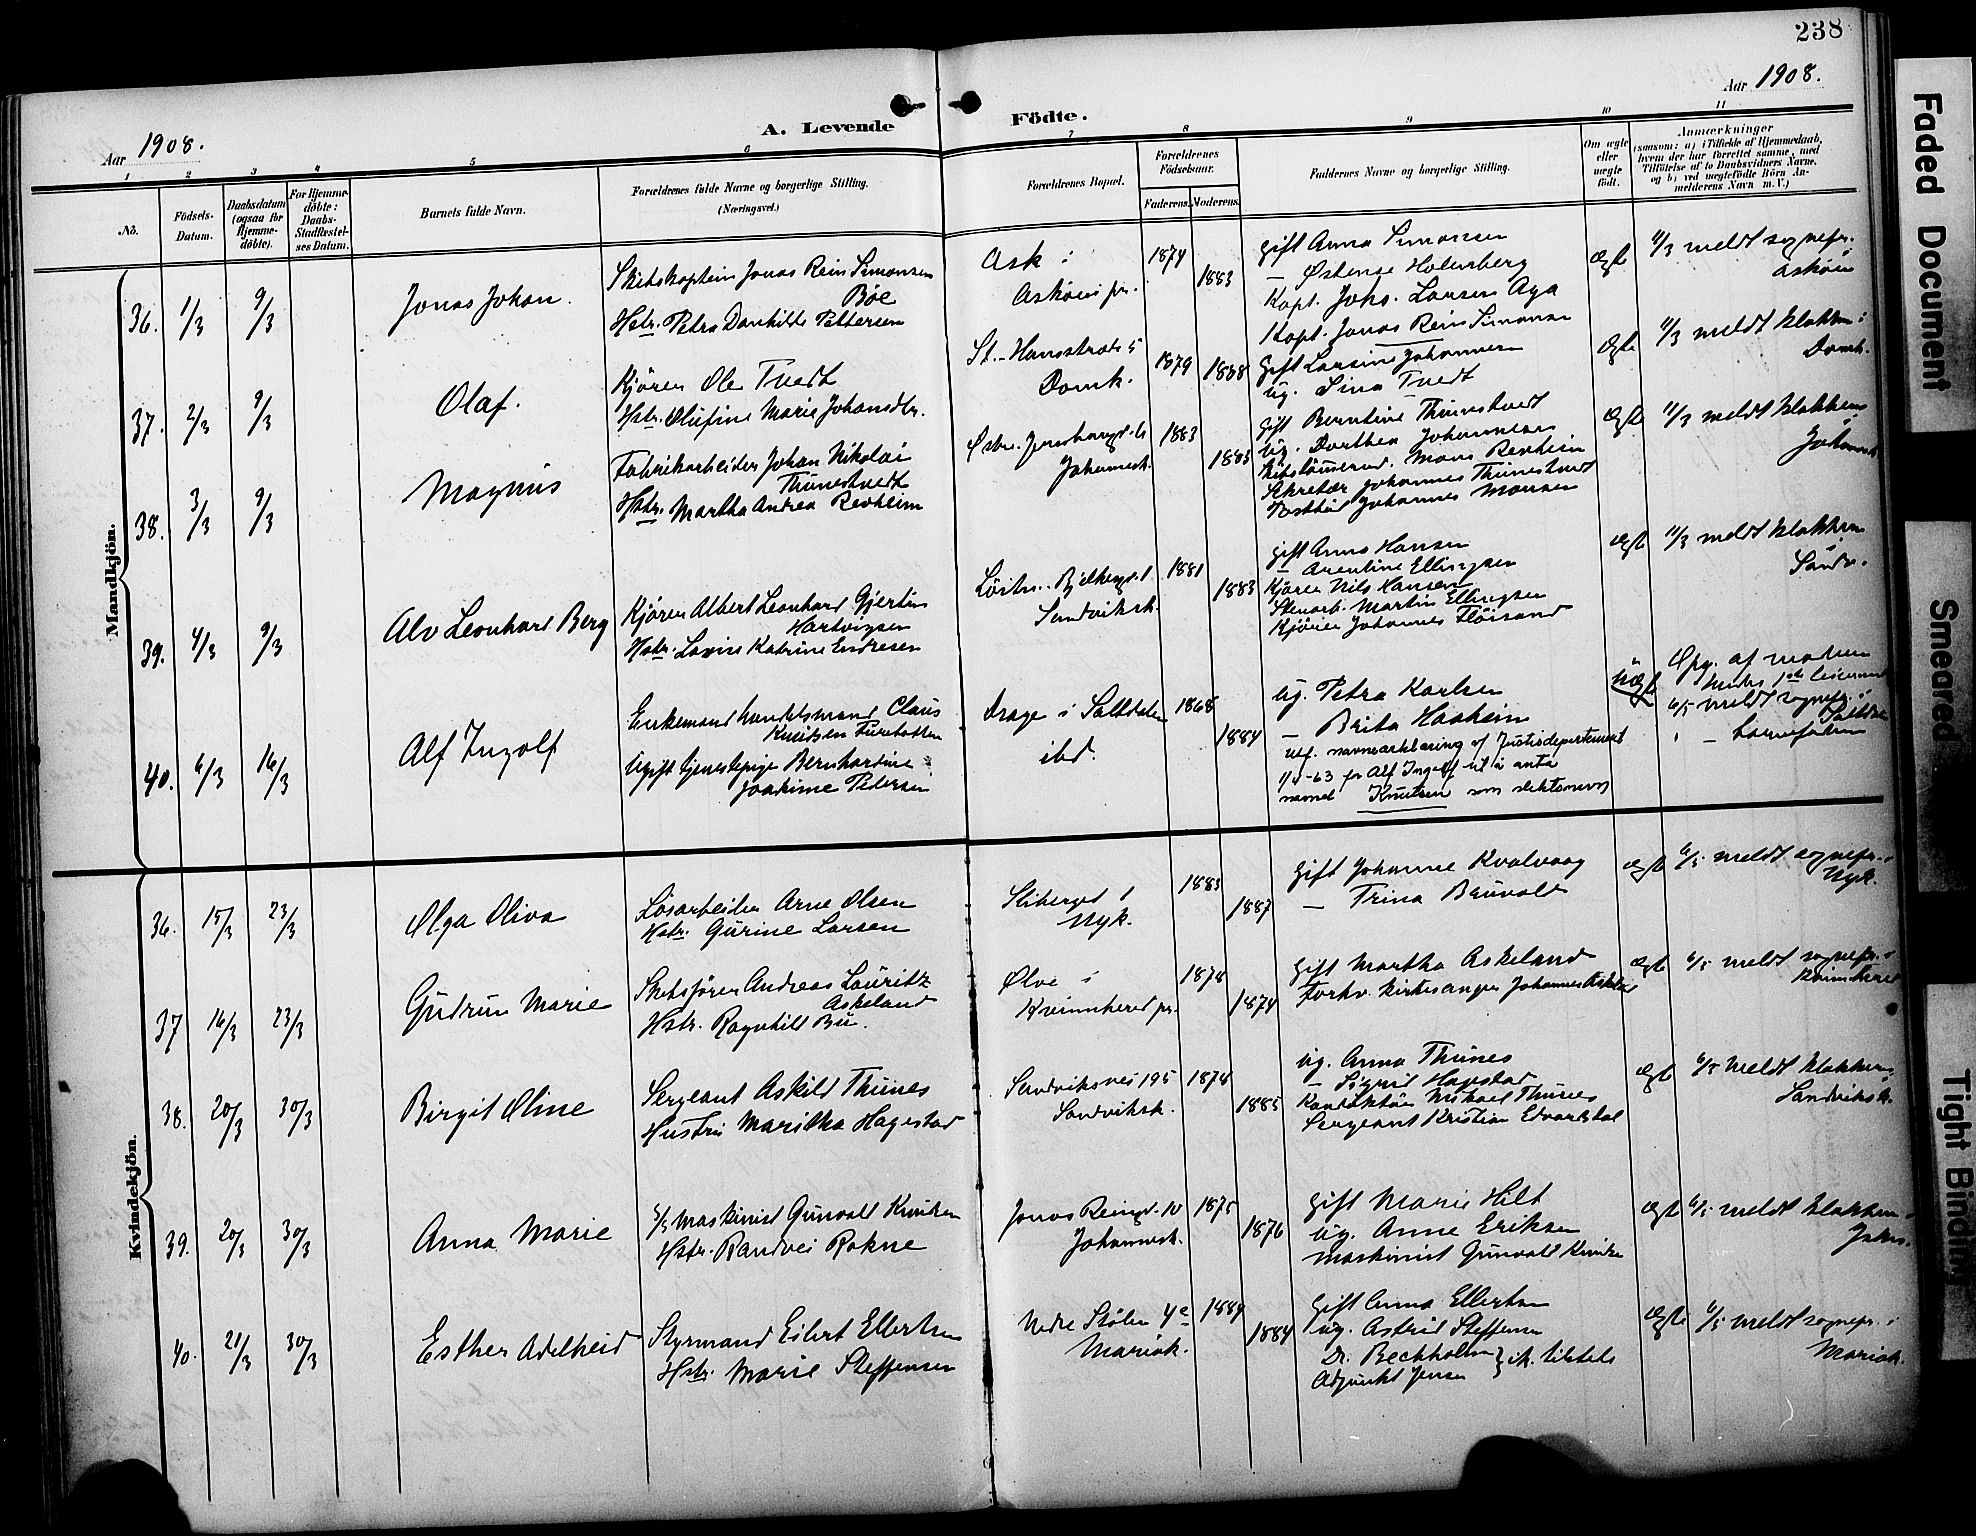 238
Aar 1908.
Aar 1908.
A. Levende Födte.
1 2 3 4 5 6 7 8 9 10 11
No.
Födsels-Datum.
Daabsdatum (ogsaa for Hjemmedöbte).
For Hjemmedöbte: Daabs-Stadfæstelses Datum.
Barnets fulde Navn.
Forældrenes fulde Navne og borgerlige Stilling.
(Næringsvei.)
Forældrenes Bopæl.
Forældrenes Födselsaar.
Faderens. Moderens.
Faddernes Navne og borgerlige Stilling.
Om ægte eller uægte födt.
Anmærkninger
(saasom: a) i Tilfælde af Hjemmedaab, hvem der har forrettet samme, med Tilföielse af to Daabsvidners Navne. og b) ved uægtefödte Börn Anmelderens Navn m. V.)
Mandkjön.
36. 1/3 9/3 Jonas Johan.
Skibskaptein Jonas Rein Simonsen
Bøe
Hstr. Petra Danhilde Pettersen
Ask i
Askøens pr.
1874 1883
Gift Anna Simonsen
— Østense Holmberg
Kapt. Johs. Larsen Aga
Kapt. Jonas Rein Simonsen
Ægte
11/3 meldt sognepr.
Askøen
37. 2/3 9/3 Olaf.
Kjører Ole Tvedt
Hstr. Olufine Marie Johansdtr.
St. Hansstræde 5
Domk.
1879 1888
Gift Larsine Johannesen
ug. Sina Tvedt
Ægte
11/3 meldt klokken i
Domk.
38. 3/3 9/3 Magnus
Fabrikarbeider Johan Nikolai
Thunestvedt
Hstr. Martha Andrea Revheim
Johannesk.
1883 1883
Gift Berntine Thunestvedt
ug. Dorthea Johannesen
Mons Revheim
Sekretær Johannes Thunestvedt
Johannes Monsen
Ægte
11/3 meldt klokken i
Johannesk.
39. 4/3 9/3 Alv Leonhard Berg
Kjører Albert Leonhard Gjertin
Hartvigsen
Hstr. Lovise Katrine Endresen
Sandviksk.
1881 1883
Gift Anna Hansen
— Arentine Ellingsen
Kjører Nils Hansen
Stenarb. Martin Ellingsen
Kjører Johannes Fløisand
Ægte
11/3 meldt klokken i
Sandv.
40. 6/3 16/3 Alf Ingolf
Enkemand handelsmand Claus
Knudsen
Ugift tjenestepige Bernhardine
Joakime Pedersen
Drage i Saltdalen
ibd.
1868 1884
ug. Petra Karlsen
— Brita Haaheim
Utf. navneerklæring af Justisdepartement
for Alf Ingolf til å anta
navnet Knutsen som slektsnavn
Uægte
Opg. af moderen
hendes 1ste leiermaal
6/5 meldt sognepr. i
Saltd.
— barnefaderen
Kvindekjön.
36. 15/3 23/3 Olga Oliva
Løsarbeider Arne Olsen
Hstr. Gurine Larsen
Stibergd 1
Nyk.
1883 1887
Gift Johanne Kvalvaag
— Trina Bruvold
Ægte
6/5 meldt sognepr. i
Nyk.
37 16/3 23/3 Gudrun Marie
Skibsfører Andreas Lauritz
Askeland
Hstr. Ragnhild Bu.
Ølve i
Kvinnhered pr.
1878 1874
Gift Martha Askeland
Forhv. kirkesanger Johannes Askeland
Ægte
6/5 meldt sognepr. i
Kvinnhered
38. 20/3 30/3 Birgit Oline
Sergeant Askild Thunes
Hustru Maritha Hagestad
Sandviksvei 195
Sandviksk.
1874 1885
ug. Anna Thunes
— Sigrid Hagestad
Konduktør Mikael Thunes
Sergeant Kristian Edvardsdal
Ægte
6/5 meldt klokken i
Sandviksk.
39. 20/3 30/3 Anna Marie
Maskinist Gunvald Knudsen
Hstr. Randvei Rokne
Jonas Reinsgd. 10
Johannesk.
1875 1876
Gift Marie Hilt
ug. Anne Eriksen
Maskinist Gunvald Knudsen
Ægte
6/5 meldt klokken i
Johs.
40. 21/3 30/3 Esther Adelheid
Styrmand Eilert Ellertsen
Hstr. Marie Steffensen
Nedre Stølen 4c
Mariak.
1884 1884
Gift Anna Ellertsen
ug. Astrid Steffensen
Dr. Bechholm } ik. tilstede
Adjunkt Jensen
Ægte
6/5 meldt sognepr. i
Mariak.
Faded Document
Smeared
Tight Binding